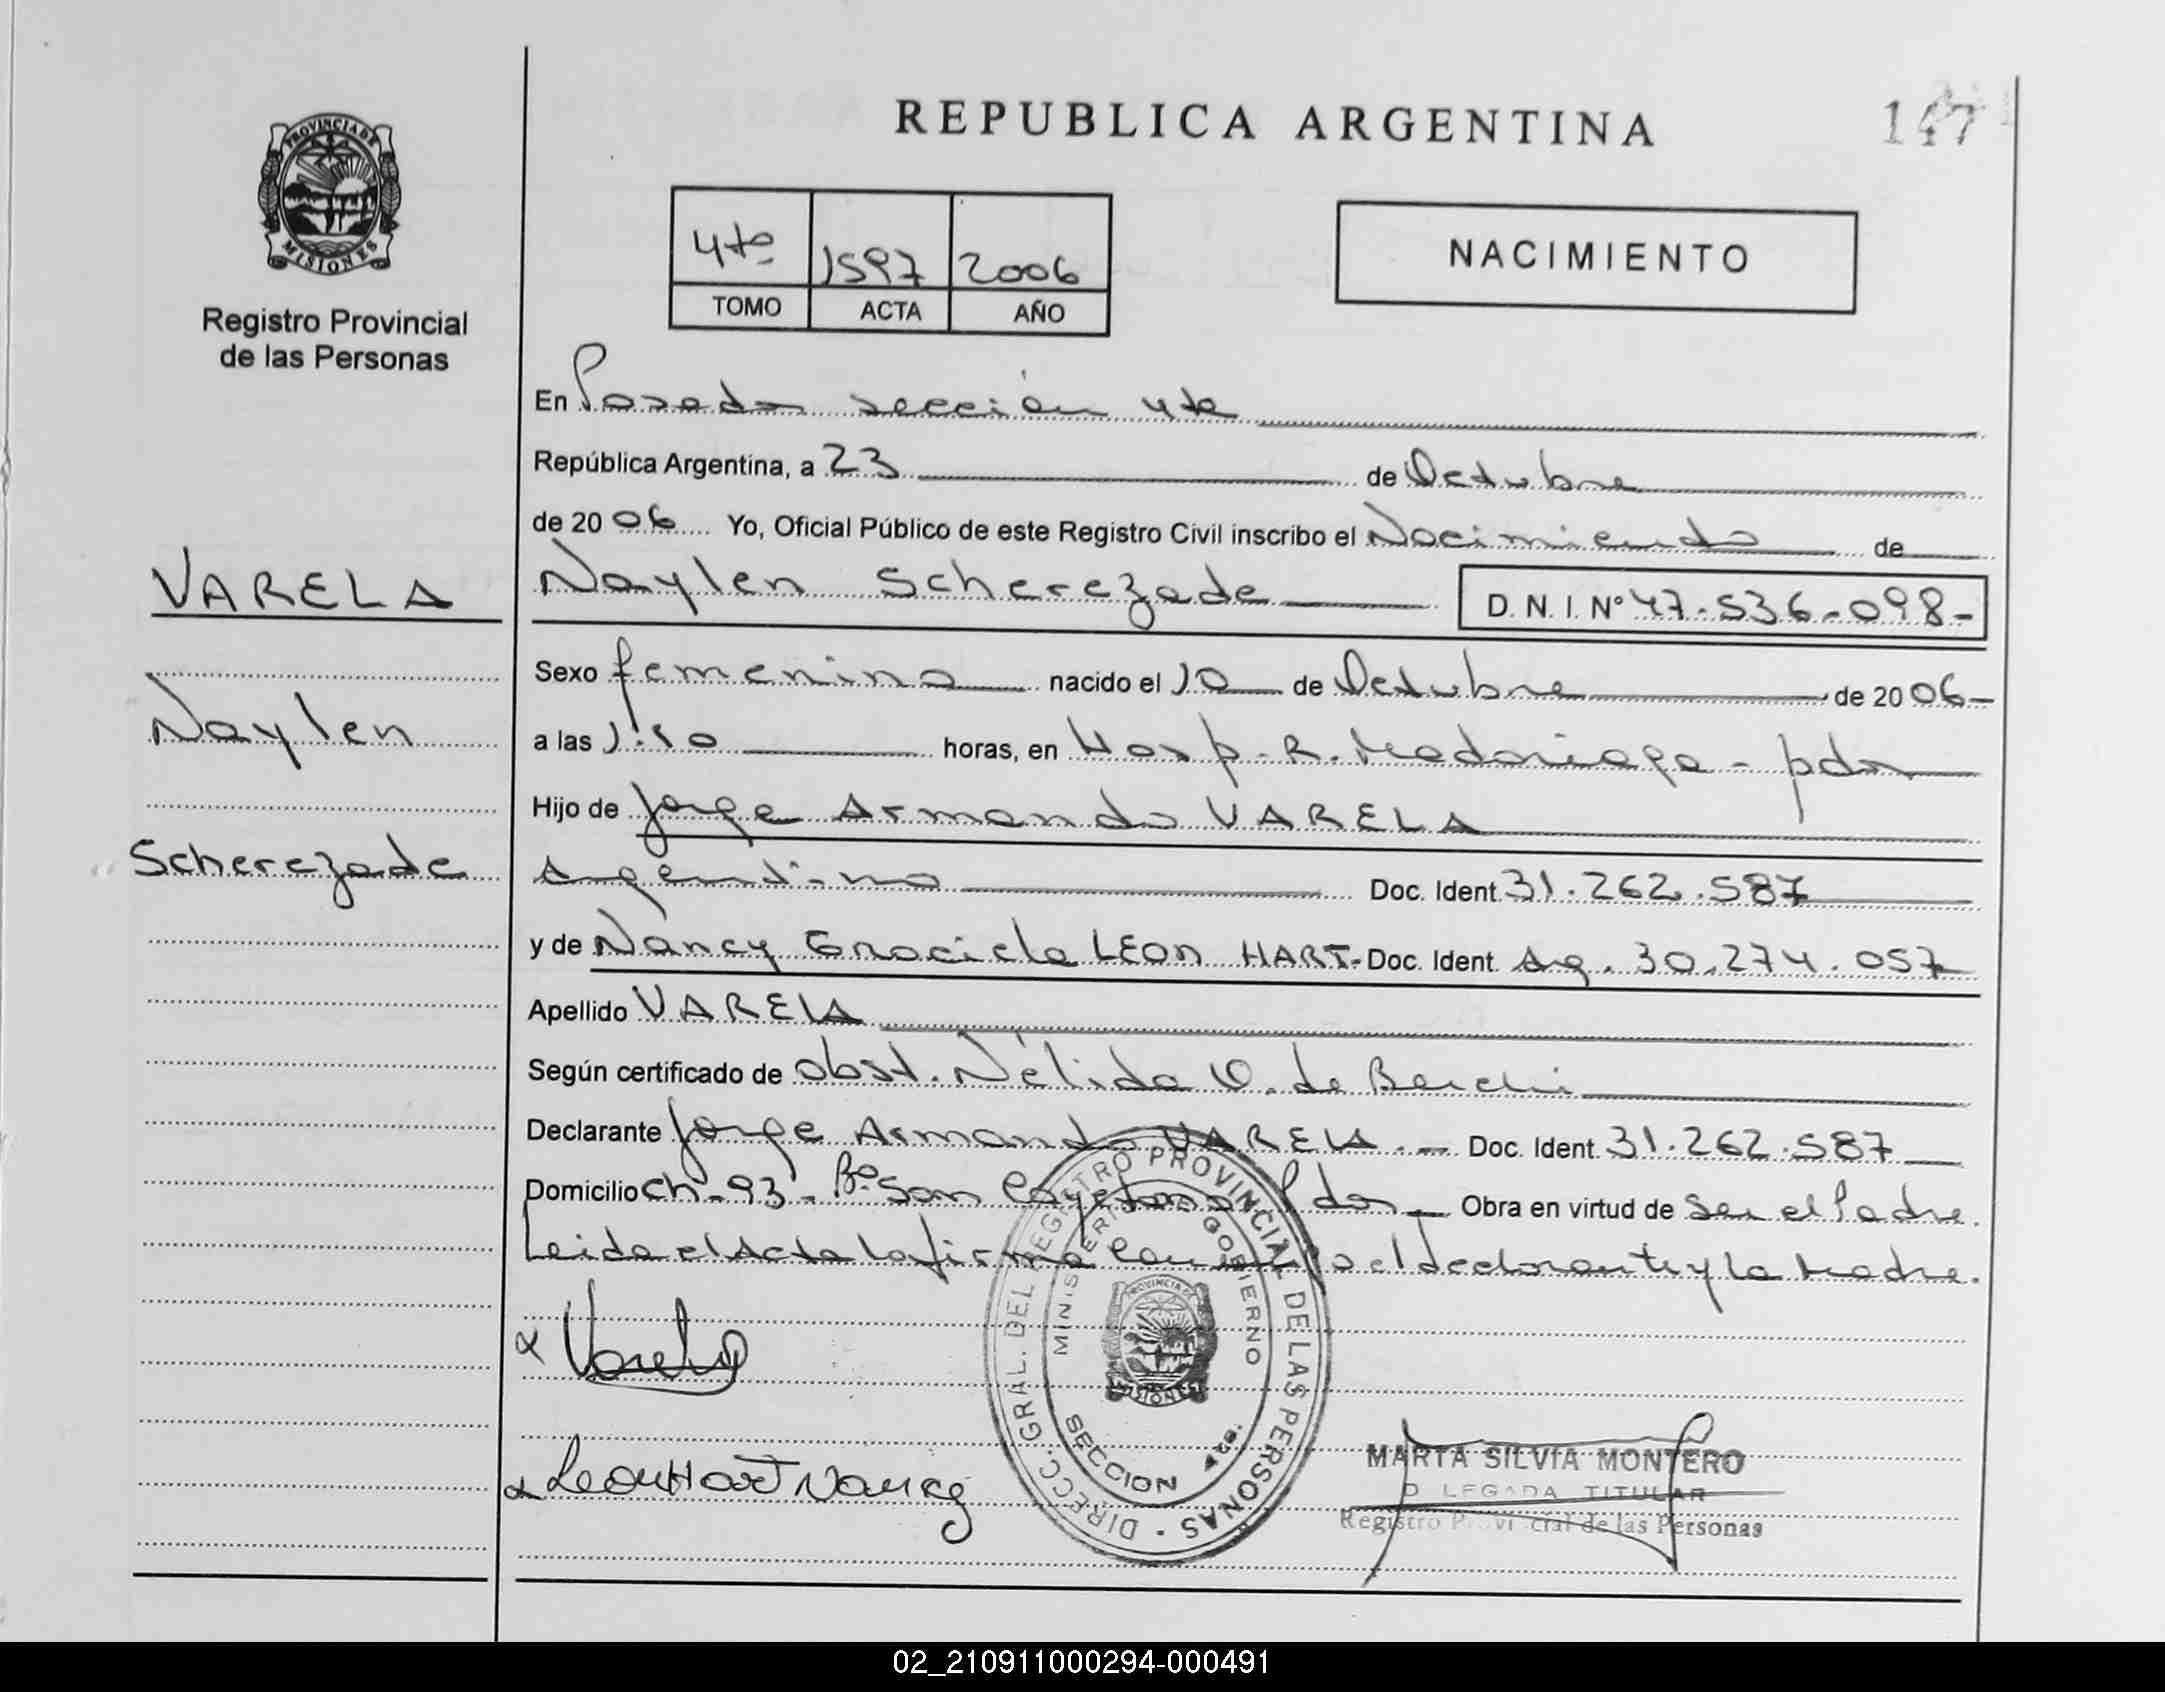 REPUBLICA ARGENTINA
147
PROVINCIA DE
MISIONES
Registro Provincial
de las Personas
4to 1597 2006
TOMO ACTA AÑO
NACIMIENTO
En Posadas sección 4ta
República Argentina, a 23 de Octubre
de 2006 Yo, Oficial Público de este Registro Civil inscribo el Nacimiento de
VARELA
Naylen Scherezade D. N. I. Nº 47.536.098-
Naylen
Scherezade
Sexo femenino nacido el 10 de Octubre de 2006-
a las 1:10 horas, en Hosp. R. Madariaga - pdas
Hijo de Jorge Armando VARELA
Argentino Doc. Ident. 31.262.587
y de Nancy Graciela LEON HART- Doc. Ident. Ag. 30.274.057
Apellido VARELA
Según certificado de obst. Nélida O. de
Declarante Jorge Armando VARELA.- Doc. Ident. 31.262.587
Domicilio Ch-93- Bº San Cayetano Pdas Obra en virtud de Ser el Padre.
Leida el Acta la firma el declarante y la Madre.
Varela
LeonHart Nancy
DIRECC. GRAL. DEL REGISTRO PROVINCIAL DE LAS PERSONAS
MINISTERIO DE GOBIERNO
PROVINCIA DE
MISIONES
SECCION 4ta.
MARTA SILVIA MONTERO
D LEGADA TITULAR
Registro Provincial de las Personas
02_210911000294-000491